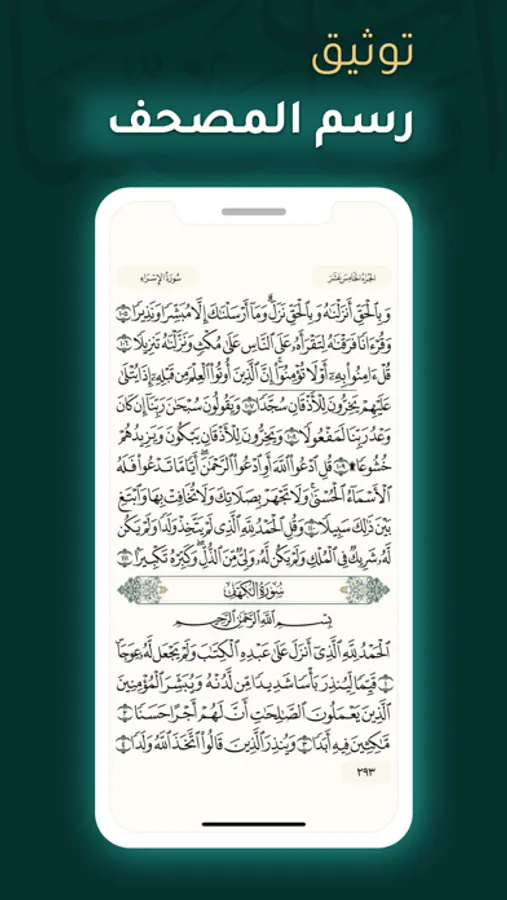 توثيق
رسم المصحف
الجزء الخامس عشر
سورة الإسراء
وَبِالْحَقِّ أَنزَلْنَٰهُ وَبِالْحَقِّ نَزَلَ ۗ وَمَا أَرْسَلْنَٰكَ إِلَّا مُبَشِّرًا وَنَذِيرًا ١٠٥
وَقُرْءَانًا فَرَقْنَٰهُ لِتَقْرَأَهُۥ عَلَى النَّاسِ عَلَىٰ مُكْثٍ وَنَزَّلْنَٰهُ تَنزِيلًا ١٠٦
قُلْ ءَامِنُوا۟ بِهِۦٓ أَوْ لَا تُؤْمِنُوٓا۟ ۚ إِنَّ الَّذِينَ أُوتُوا۟ الْعِلْمَ مِن قَبْلِهِۦٓ إِذَا يُتْلَىٰ
عَلَيْهِمْ يَخِرُّونَ لِلْأَذْقَانِ سُجَّدًا ١٠٧ وَيَقُولُونَ سُبْحَٰنَ رَبِّنَآ إِن كَانَ
وَعْدُ رَبِّنَا لَمَفْعُولًا ١٠٨ وَيَخِرُّونَ لِلْأَذْقَانِ يَبْكُونَ وَيَزِيدُهُمْ
خُشُوعًا ۩ ١٠٩ قُلِ ادْعُوا۟ اللَّهَ أَوِ ادْعُوا۟ الرَّحْمَٰنَ ۖ أَيًّا مَّا تَدْعُوا۟ فَلَهُ
الْأَسْمَآءُ الْحُسْنَىٰ ۚ وَلَا تَجْهَرْ بِصَلَاتِكَ وَلَا تُخَافِتْ بِهَا وَابْتَغِ
بَيْنَ ذَٰلِكَ سَبِيلًا ١١٠ وَقُلِ الْحَمْدُ لِلَّهِ الَّذِى لَمْ يَتَّخِذْ وَلَدًا وَلَمْ يَكُن
لَّهُۥ شَرِيكٌ فِى الْمُلْكِ وَلَمْ يَكُن لَّهُۥ وَلِىٌّ مِّنَ الذُّلِّ ۖ وَكَبِّرْهُ تَكْبِيرًا ١١١
سُورَةُ الكَهْفِ
بِسْمِ اللَّهِ الرَّحْمَٰنِ الرَّحِيمِ
الْحَمْدُ لِلَّهِ الَّذِىٓ أَنزَلَ عَلَىٰ عَبْدِهِ الْكِتَٰبَ وَلَمْ يَجْعَل لَّهُۥ عِوَجَا ۜ
١ قَيِّمًا لِّيُنذِرَ بَأْسًا شَدِيدًا مِّن لَّدُنْهُ وَيُبَشِّرَ الْمُؤْمِنِينَ
الَّذِينَ يَعْمَلُونَ الصَّٰلِحَٰتِ أَنَّ لَهُمْ أَجْرًا حَسَنًا ٢
مَّٰكِثِينَ فِيهِ أَبَدًا ٣ وَيُنذِرَ الَّذِينَ قَالُوا۟ اتَّخَذَ اللَّهُ وَلَدًا ٤
٢٩٣